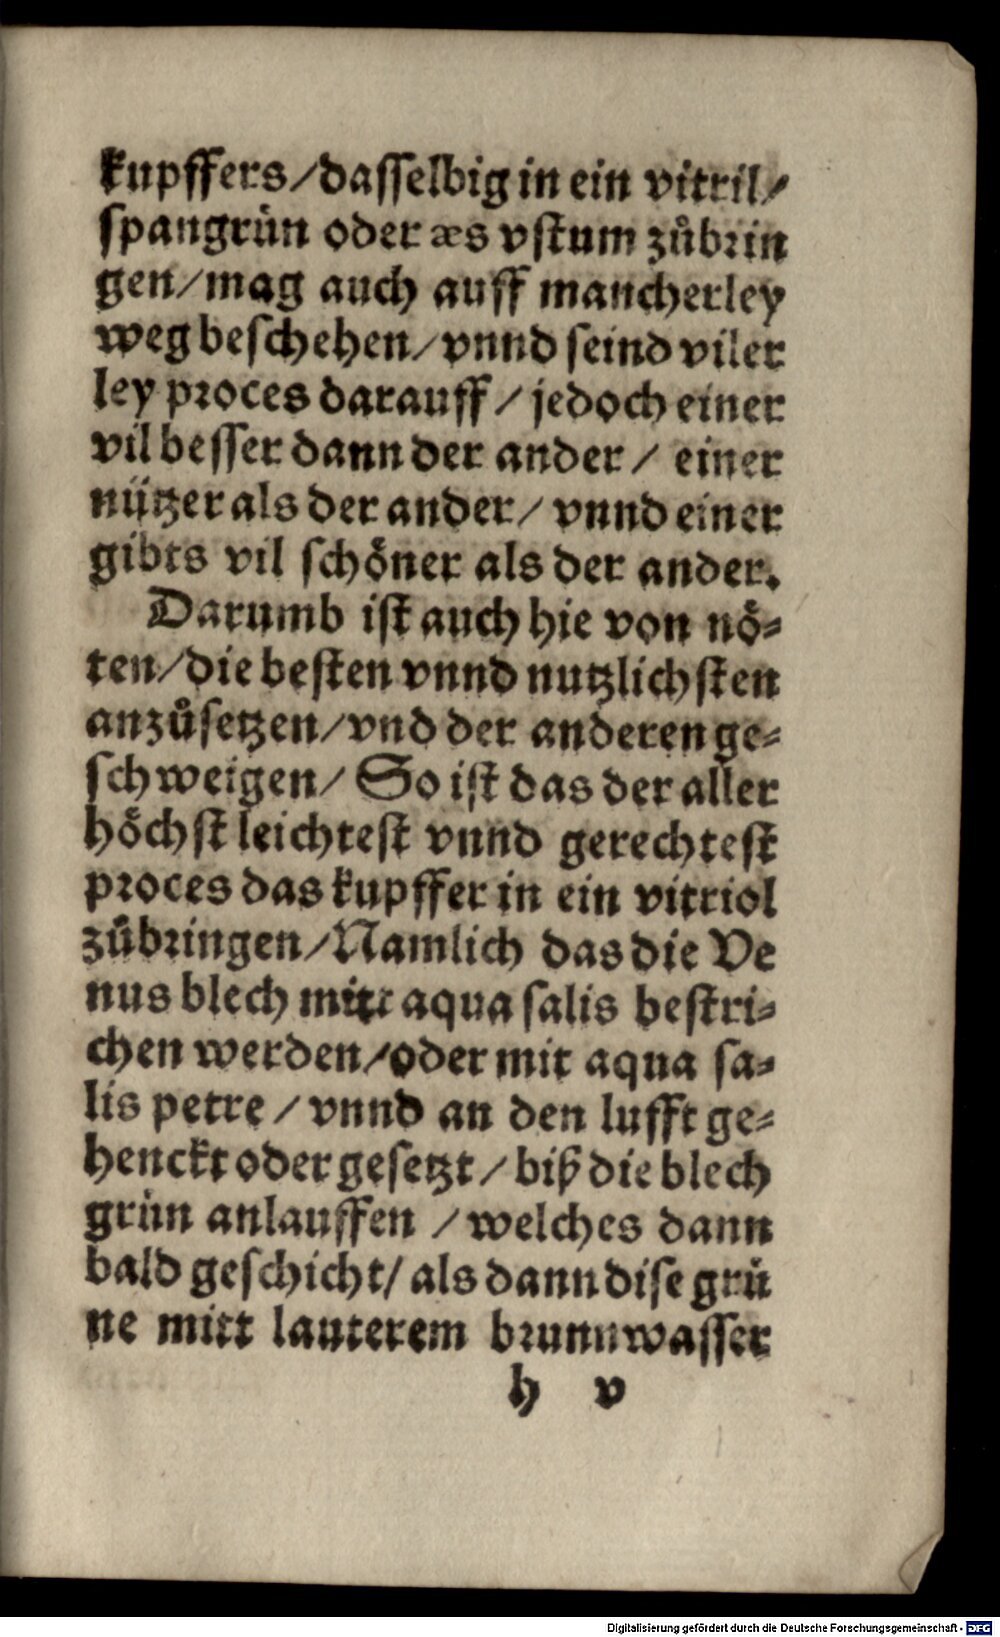 kupffers/dasselbig in ein vitril/
spangrün oder æs vstum zůbrin
gen/mag auch auff mancherley
weg beschehen/vnnd seind viler
ley proces darauff / jedoch einer
vil besser dann der ander / einer
nützer als der ander/ vnnd einer
gibts vil schöner als der ander.
Darumb ist auch hie von nö-
ten/die besten vnnd nutzlichsten
anzůsetzen/vnd der anderen ge-
schweigen/ So ist das der aller
höchst leichtest vnnd gerechtest
proces das kupffer in ein vitriol
zůbringen/Namlich das die Ve
nus blech mitt aqua salis bestri-
chen werden/oder mit aqua sa-
lis petre / vnnd an den lufft ge-
henckt oder gesetzt / biß die blech
grün anlauffen / welches dann
bald geschicht/ als dann dise grü
ne mitt lauterem brunnwasser
h v
Digitalisierung gefördert durch die Deutsche Forschungsgemeinschaft - DFG